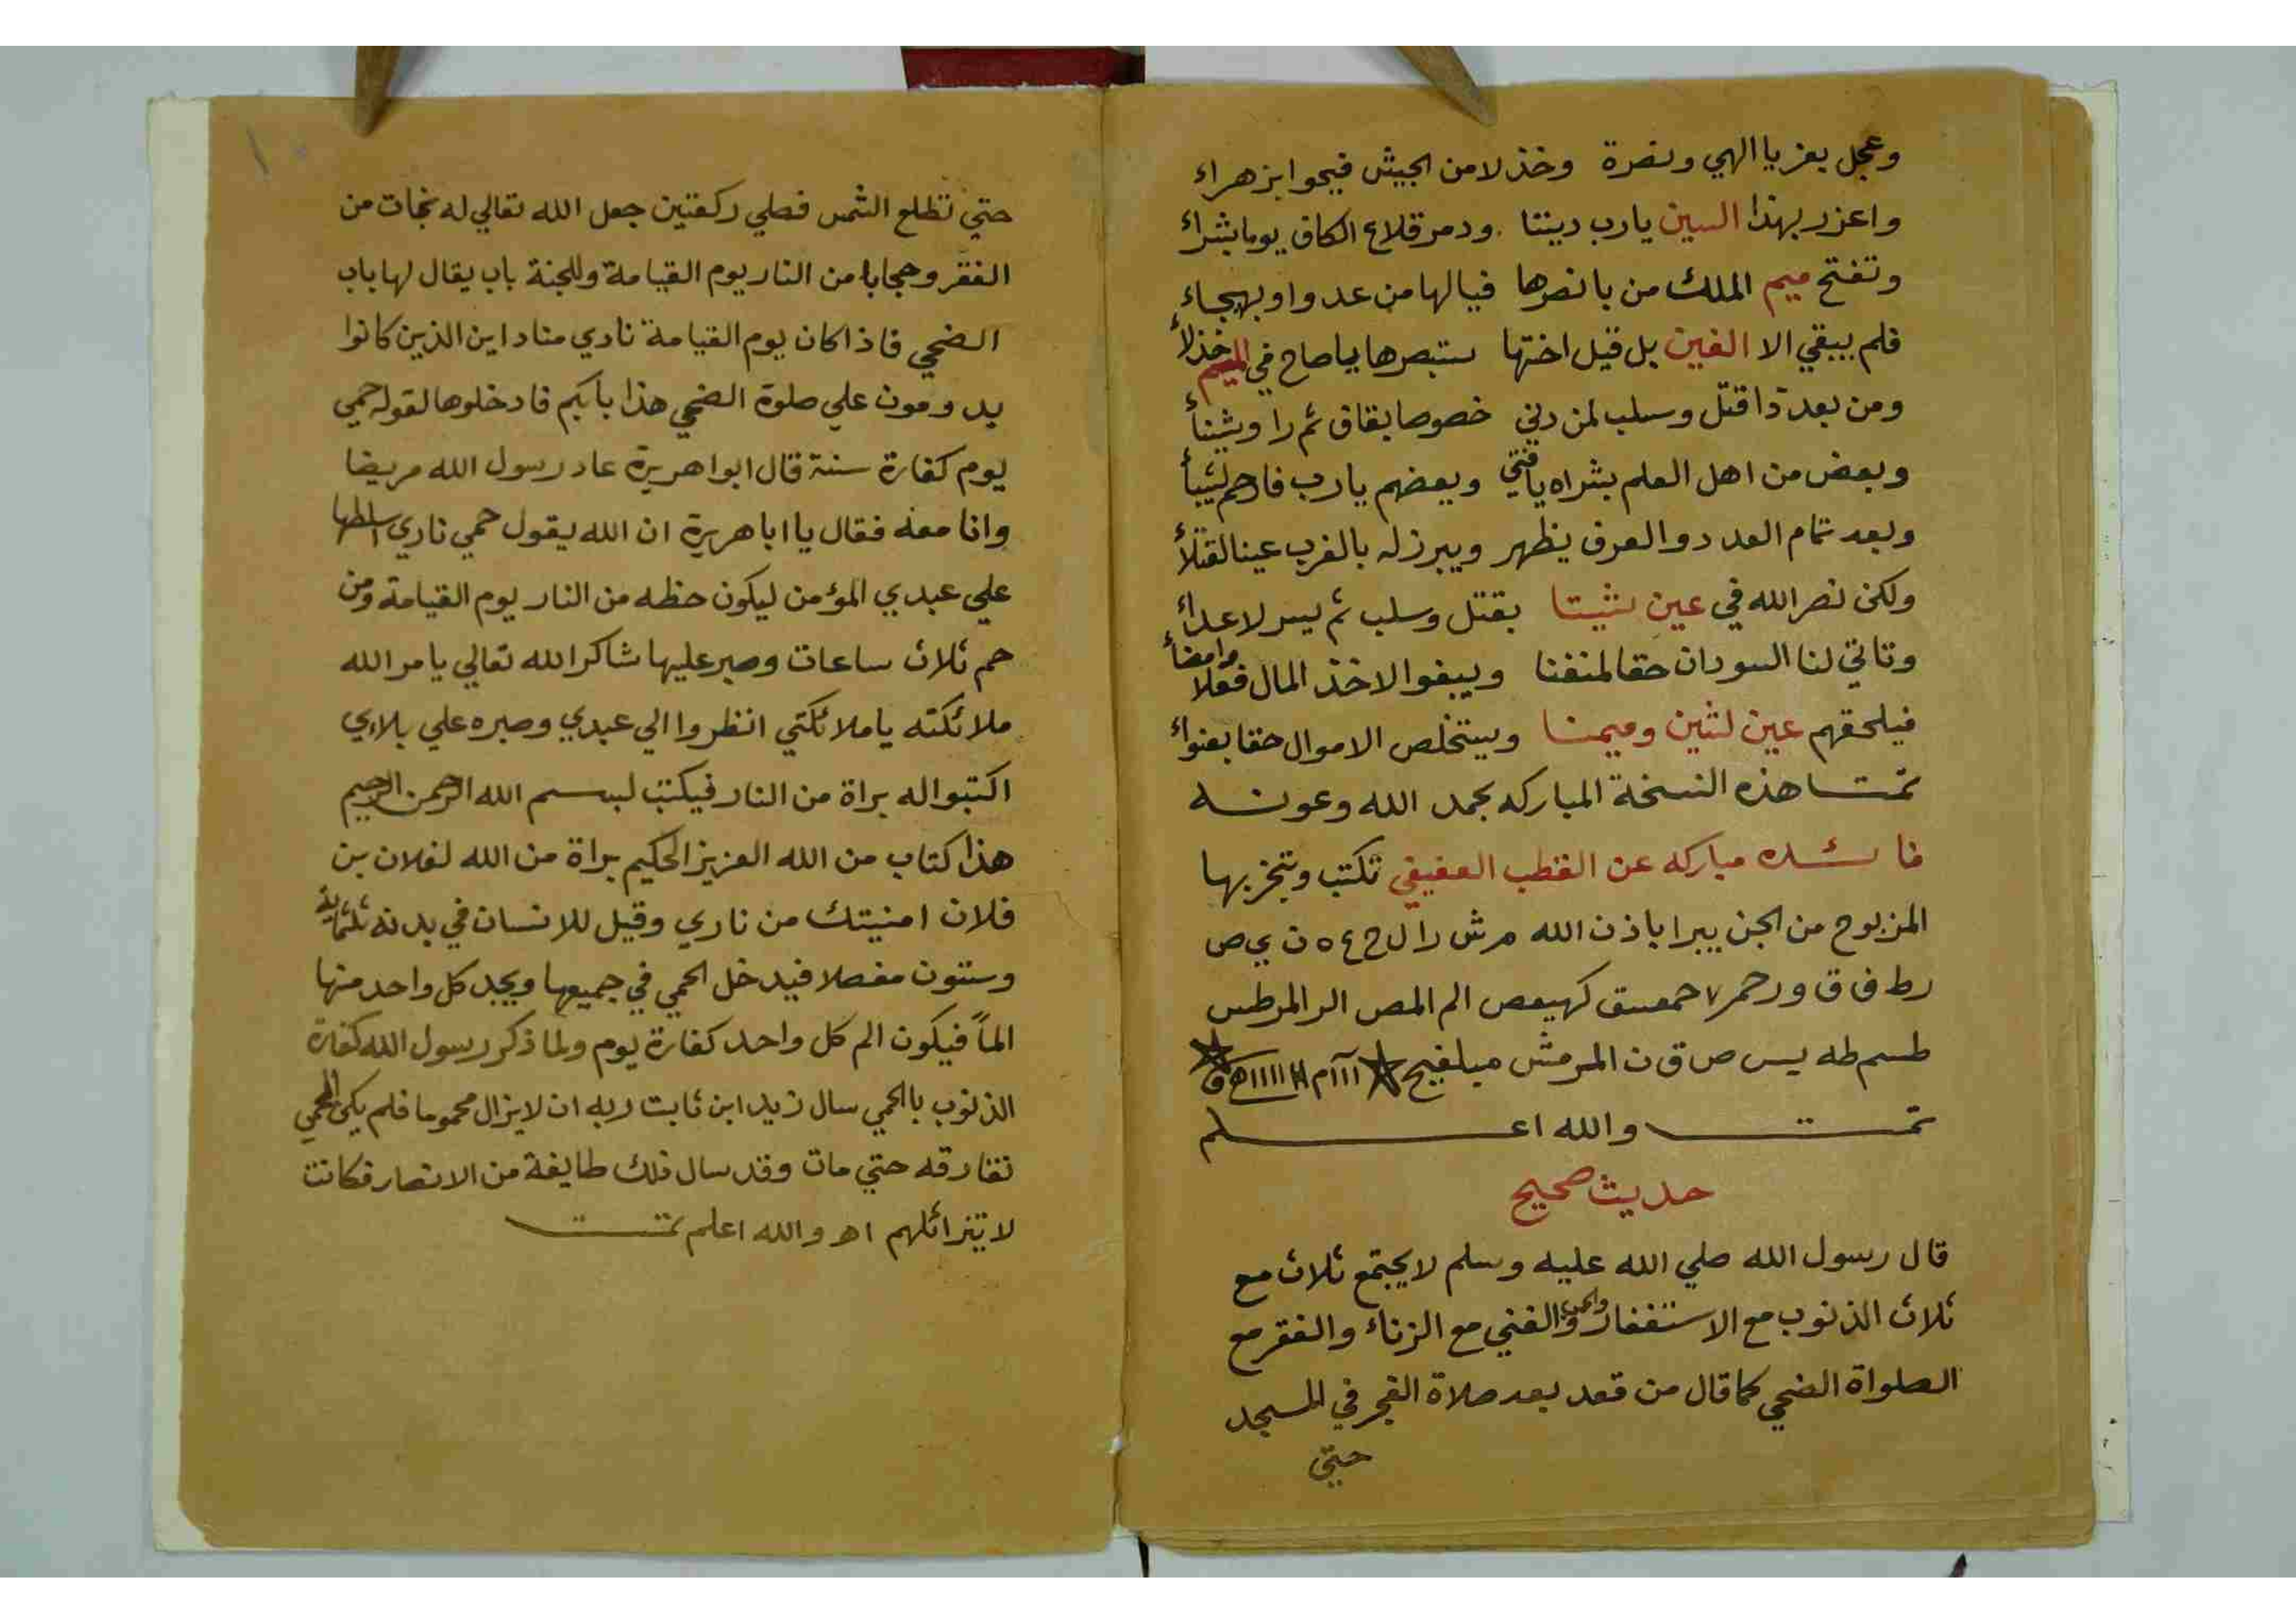 وعجل بعز يا الهي ونصرة وخذلا من الجيش فيحوا بزهراء
واعزر بهذا السين يارب ديننا ودمر قلاع الكاف يوما بشراء
وتفتح ميم الملك من بانصرها فيالها من عدوا وبهجاء
فلم يبقي الا الغين بل قيل اختها ستبصرها ياصاح في الميم خذلاء
ومن بعد ذا قتل وسلب لمن دني خصوصا بقاف ثم را وشيناء
وبعض من اهل العلم بشراه يافتي وبعضهم يارب فارحم لشيباء
وبعد تمام العدد والعرف يظهر ويبرزله بالغرب عينا لقتلاء
ولكن نصر الله في عين لثيتا بقتل وسلب ثم يسر لاعداء
وتاتي لنا السودان حقا لمنفنا ويبغوا لاخذ المال فعلا وامضاء
فيلحقهم عين لثين وميمنا ويستخلص الاموال حقا بعنواء
تمت هذه النسخة المباركه بحمد الله وعونه
فائده مباركه عن القطب العفيفي تكتب وتبخر بها
المزبوح من الجن يبرا باذن الله م ش را ل ح ع ه ن ي ص
رط ف ق و رحمر ٧ حمعسق كهيعص الم المص الر المر طس
طسم طه يس ص ق ن المرمش مبلغيح ااام ااااا ه و
تمت والله اعلم
حديث صحيح
قال رسول الله صلي الله عليه وسلم لا يجتمع ثلاث مع
ثلاث الذنوب مع الاستغفار والغني مع الزناء والفقر مع
الصلواة الضحي كما قال من قعد بعد صلاة الفجر في المسجد
حتي
حتي تطلع الشمس فصلي ركعتين جعل الله تعالي له نجات من
الفقر وحجابا من النار يوم القيامة وللجنة باب يقال لها باب
الضحي فاذا كان يوم القيامة نادي مناد اين الذين كانوا
يدومون علي صلوة الضحي هذا بابكم فادخلوها لقوله حمي
يوم كفارة سنة قال ابوا هريرة عاد رسول الله مريضا
وانا معه فقال يا ابا هريرة ان الله يقول حمي ناري اسلطها
علي عبدي المؤمن ليكون حظه من النار يوم القيامة ومن
حم ثلاث ساعات وصبر عليها شاكرا لله تعالي يامر الله
ملائكته ياملائكتي انظروا الي عبدي وصبره علي بلاءي
اكتبوا له براة من النار فيكتب لبسم الله الرحمن الرحيم
هذا كتاب من الله العزيز الحكيم براة من الله لفلان بن
فلان امنيتك من ناري وقيل للانسان في بدنه ثلثماية
وستون مفصلا فيدخل الحمي في جميعها ويجد كل واحد منها
الماً فيكون الم كل واحد كفارة يوم ولما ذكر رسول الله كفارة
الذنوب بالحمي سال زيد ابن ثابت ربه ان لا يزال محموما فلم يكن الحمي
تفارقه حتي مات وقد سال ذلك طايفة من الانصار فكانت
لا تيزائلهم اه والله اعلم تمت